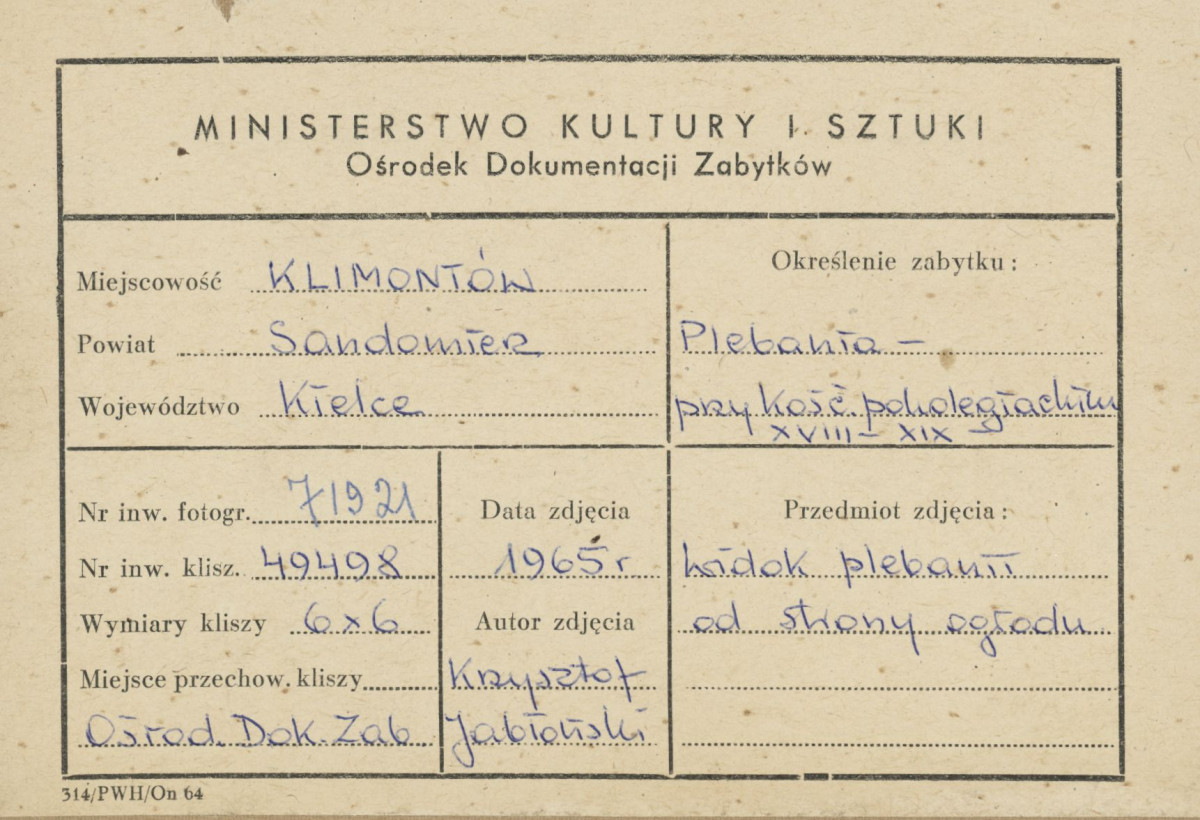 MINISTERSTWO KULTURY I SZTUKI
Ośrodek Dokumentacji Zabytków
Miejscowość KLIMONTÓW
Powiat Sandomierz
Województwo Kielce
Określenie zabytku:
Plebania –
przy kość. pokolegiackim
XVIII – XIX –
Nr inw. fotogr. 71921
Nr inw. klisz. 49498
Wymiary kliszy 6×6
Miejsce przechow. kliszy
Ośrod. Dok. Zab.
Data zdjęcia
1965 r.
Autor zdjęcia
Krzysztof
Jabłoński
Przedmiot zdjęcia:
Widok plebanii
od strony ogrodu
314/PWH/On 64